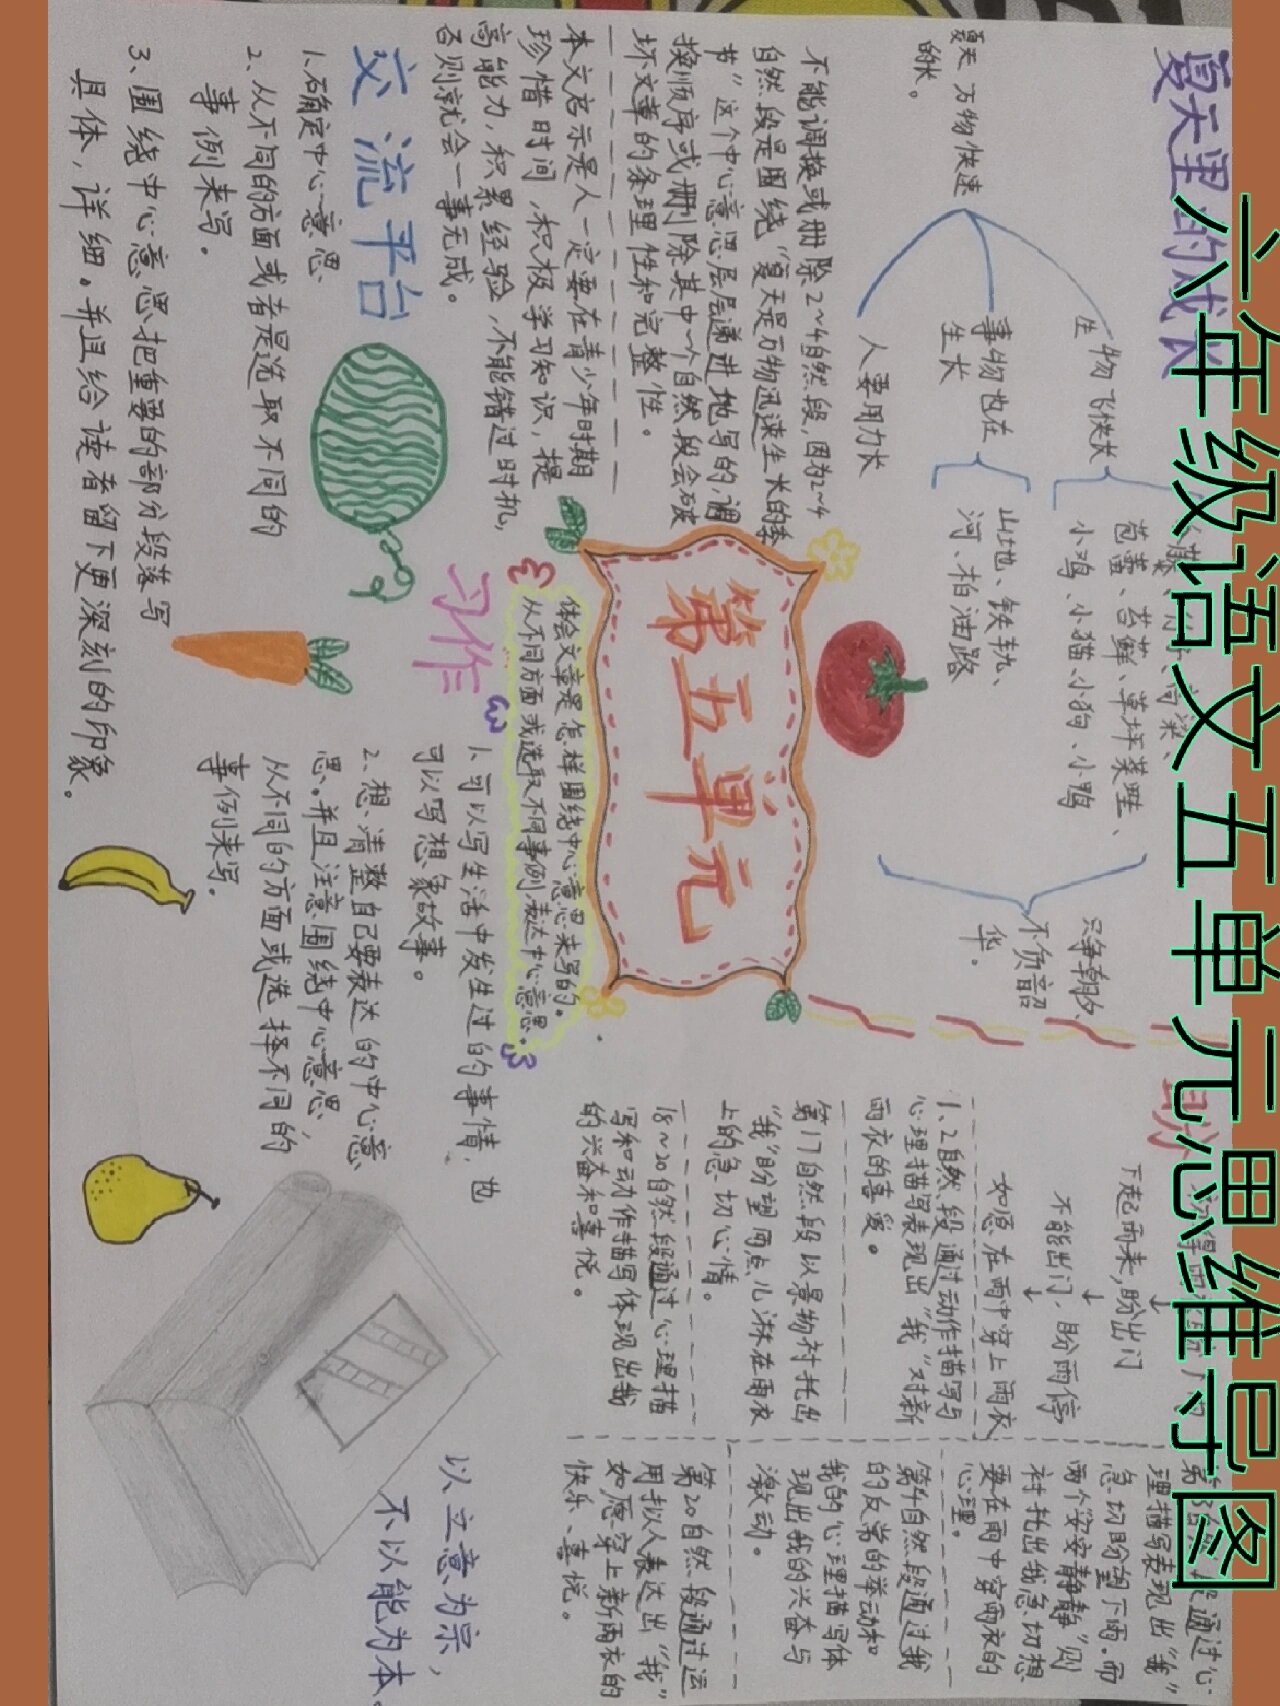 六年级语文五单元思维导图
夏天里的成长
夏天万物快速
的长。
生物飞快长
事物也在
生长
人要用力长
苞蕾、苔藓、草坪菜畦、
小鸡、小猫、小狗、小鸭
山地、铁轨、
河、柏油路
只争朝夕、
不负韶
华。
不能调换或删除2~4自然段,因为2~4
自然段是围绕“夏天是万物迅速生长的季
节”这个中心意思层层递进地写的,调
换顺序或删除其中一个自然段会破
坏文章的条理性和完整性。
本文启示是人一定要在青少年时期
珍惜时间,积极学习知识,提
高能力,积累经验,不能错过时机,
否则就会一事无成。
交流平台
1.确定中心意思
2、从不同的方面或者是选取不同的
事例来写。
3、围绕中心意思把重要的部分段落写
具体,详细。并且给读者留下更深刻的印象。
第五单元
体会文章是怎样围绕中心意思来写的。
从不同方面或选取不同事例,表达中心意思。
习作
1.可以写生活中发生过的事情,也
可以写想象故事。
2、想清整自己要表达的中心意
思。并且注意围绕中心意思,
从不同的方面或选择不同的
事例来写。
盼
下起雨来,盼出门
↓
不能出门,盼雨停
↓
如愿在雨中穿上雨衣
1、2自然段通过动作描写与
心理描写表现出“我”对新
雨衣的喜爱。
第17自然段以景物衬托出
“我”盼望雨点儿淋在雨衣
上的急切心情。
18~20自然段通过心理描
写和动作描写体现出我
的兴奋和喜悦。
段通过心
理描写表现出“我”
急切盼望下雨。而
雨个安安静静”则
衬托出我急切想
要在雨中穿雨衣的
心理。
第4自然段通过我
的反常的举动和
我的心理描写体
现出我的兴奋与
激动。
第20自然段通过运
用拟人表达出“我”
如愿穿上新雨衣的
快乐、喜悦。
以立意为宗,
不以能为本。